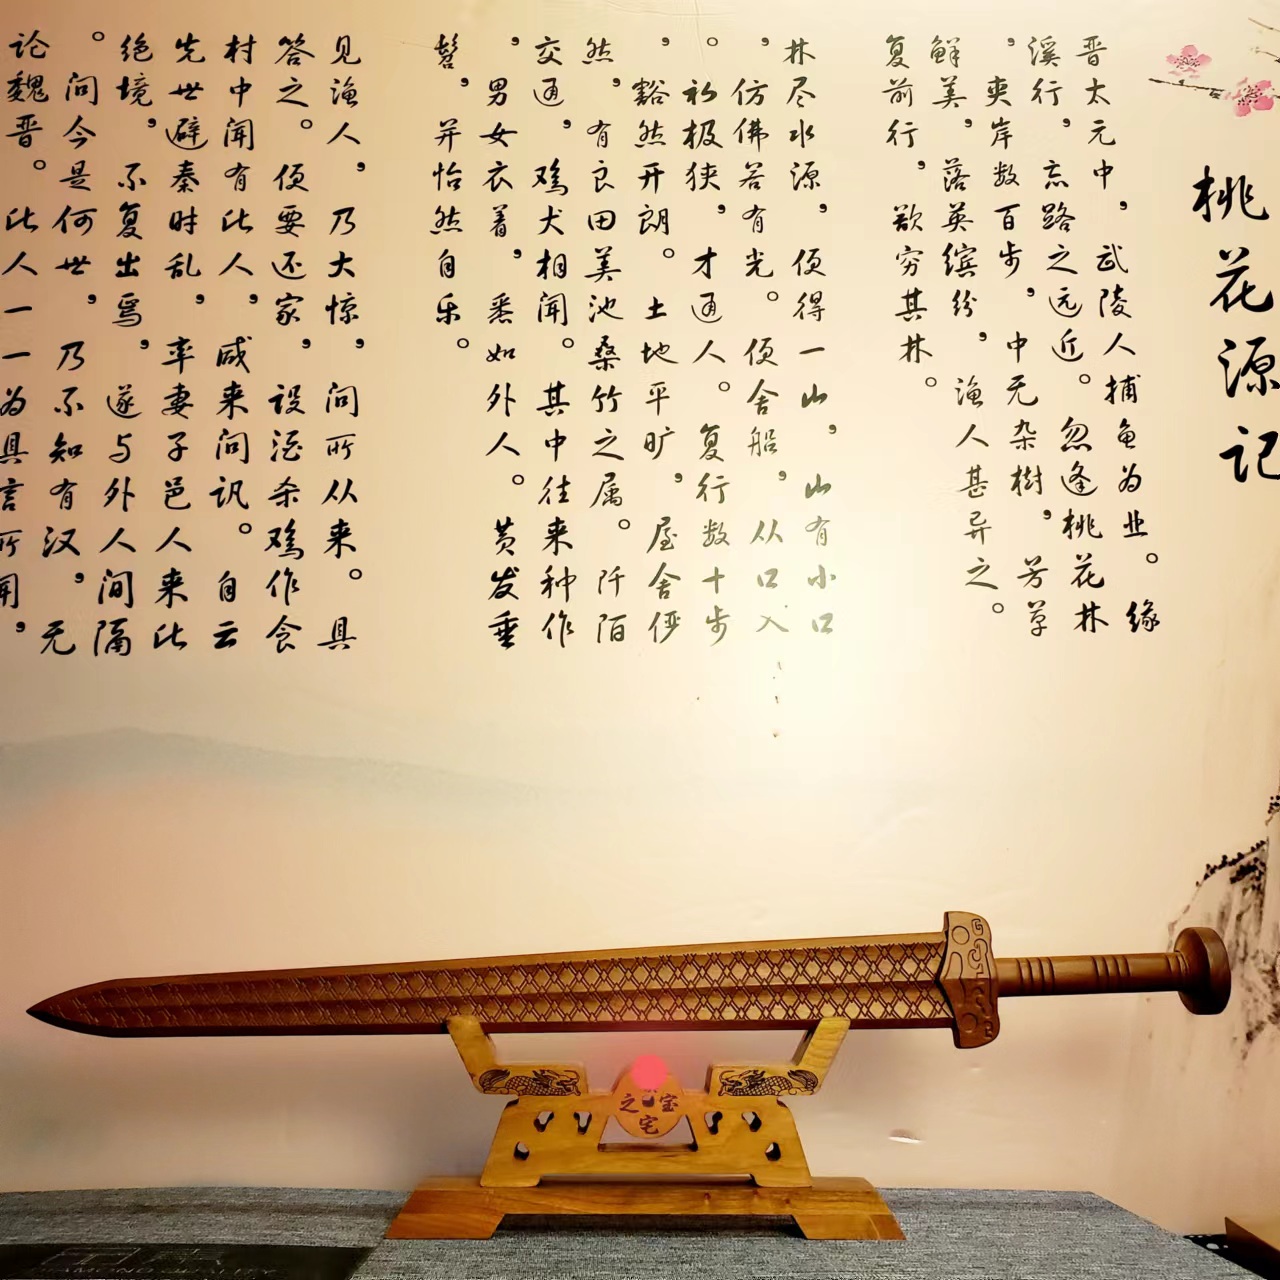 桃花源记
晋太元中，武陵人捕鱼为业。缘
溪行，忘路之远近。忽逢桃花林
，夹岸数百步，中无杂树，芳草
鲜美，落英缤纷，渔人甚异之。
复前行，欲穷其林。
林尽水源，便得一山，山有小口
，仿佛若有光。便舍船，从口入
。初极狭，才通人。复行数十步
，豁然开朗。土地平旷，屋舍俨
然，有良田美池桑竹之属。阡陌
交通，鸡犬相闻。其中往来种作
，男女衣着，悉如外人。黄发垂
髫，并怡然自乐。
见渔人，乃大惊，问所从来。具
答之。便要还家，设酒杀鸡作食
村中闻有此人，咸来问讯。自云
先世避秦时乱，率妻子邑人来此
绝境，不复出焉，遂与外人间隔
。问今是何世，乃不知有汉，无
论魏晋。此人一一为具言所闻，
宅之宝